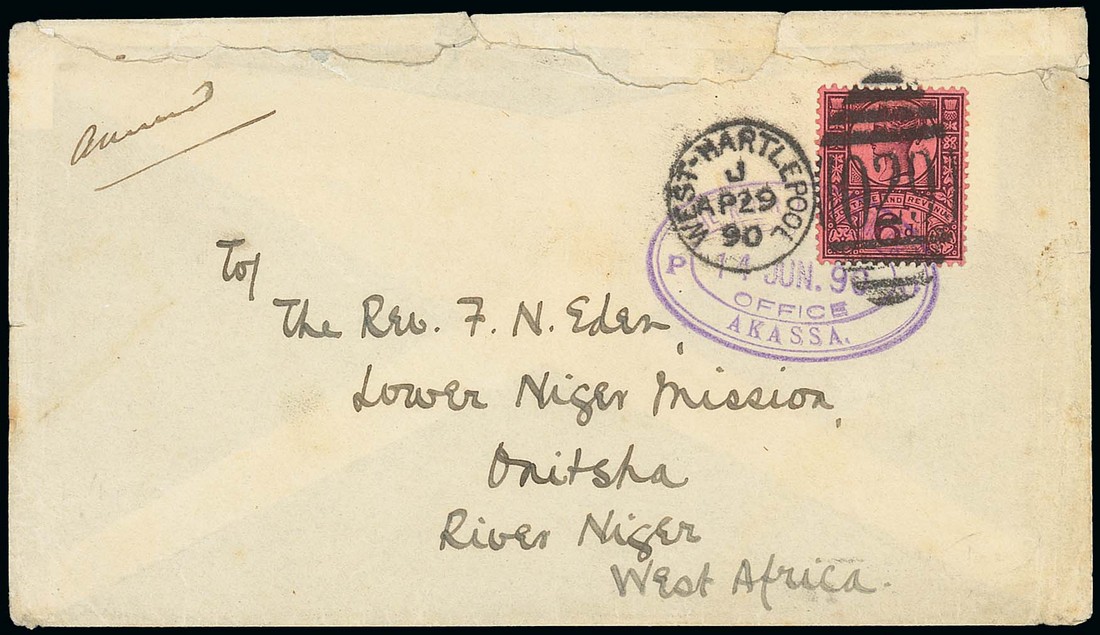 To/
The Rev. F. N. Eden,
Lower Niger Mission,
Onitsha
River Niger
West Africa.
WEST-HARTLEPOOL
J
AP 29
90
POSTAGE AND REVENUE
6d
P
14 JUN. 90
OFFICE
AKASSA.